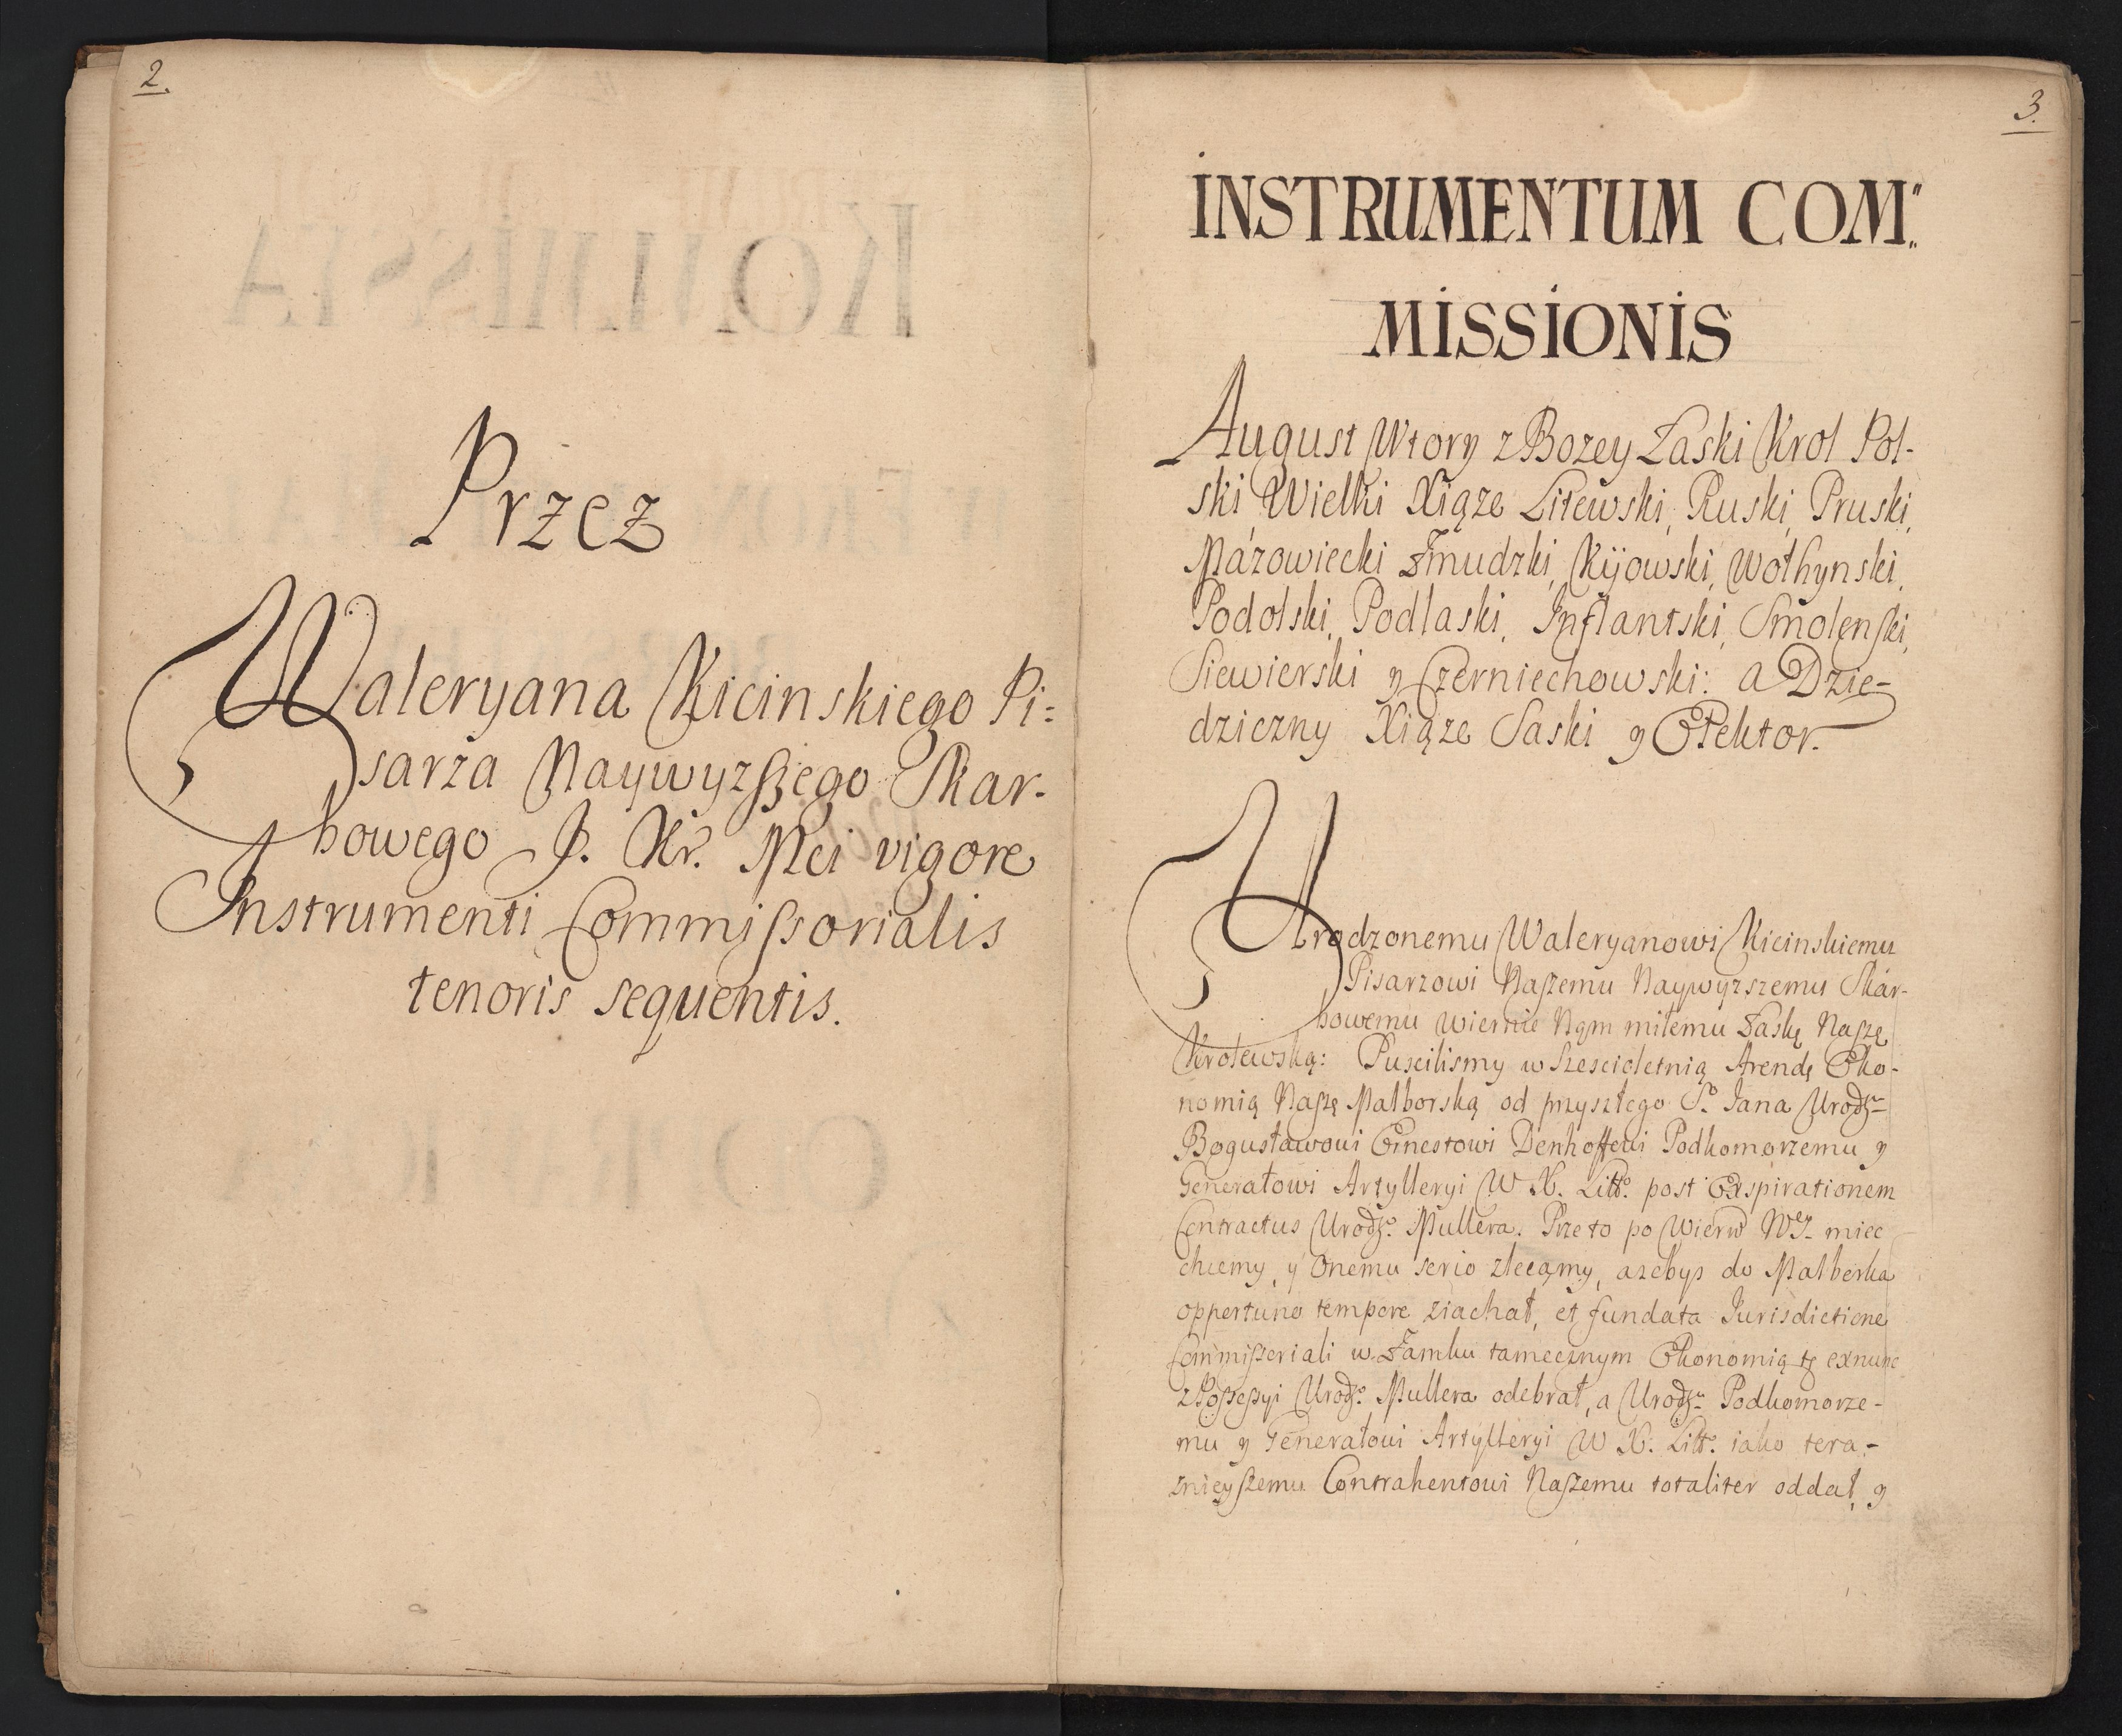 2.
Przez
Waleryana Kicinskiego Pi=
sarza Naywyzſzego Skar-
bowego J. Kr. Mci vigore
Instrumenti Commiſsorialis
tenoris sequentis.
3.
INSTRUMENTUM COM„
MISSIONIS
August Wtory z Bozey Łaski Krol Pol-
ski, Wielki Xiąze Litewski, Ruski, Pruski,
Mázowiecki Zmudzki, Kijowski, Wołhynski,
Podolski, Podlaski, Inflantski, Smolenſki,
Siewierski y Czerniechowski: a Dzie-
dziczny Xiąze Saski y Elektor.
Urodzonemu Waleryanowi Kicinskiemu
Pisarzowi Naſzemu Naywyzszemu Skár-
bowemu wiernie Nąm miłemu Łaskę Naſzę
Krolewską: Puscilismy w Szescioletnią Arendę Eko-
nomią Naſzę Malborską od przyszłego S.º Jana Urodz.
Bogusławowi Ernestowi Denhoffowi Podkomorzemu y
Generałowi Artylleryi W X. Litt.º post Exspirationem
Contractus Urodz.º Mullera. Przeto po Wierń. WJ. miec
chcemy, y Onemu serio zlecąmy, azebys do Malborka
opportuno tempore ziachał, et fundata Jurisdictione
Commiſsoriali w Zamku tamecznym Ekonomią tę exnunc
z Poſseſsyi Urodz.º Mullera odebrał, a Urodz. Podkomorze-
mu y Generałowi Artylleryi W X. Litt.º iako tera-
znieyſzemu Contrahentowi Naſzemu totaliter oddał, y